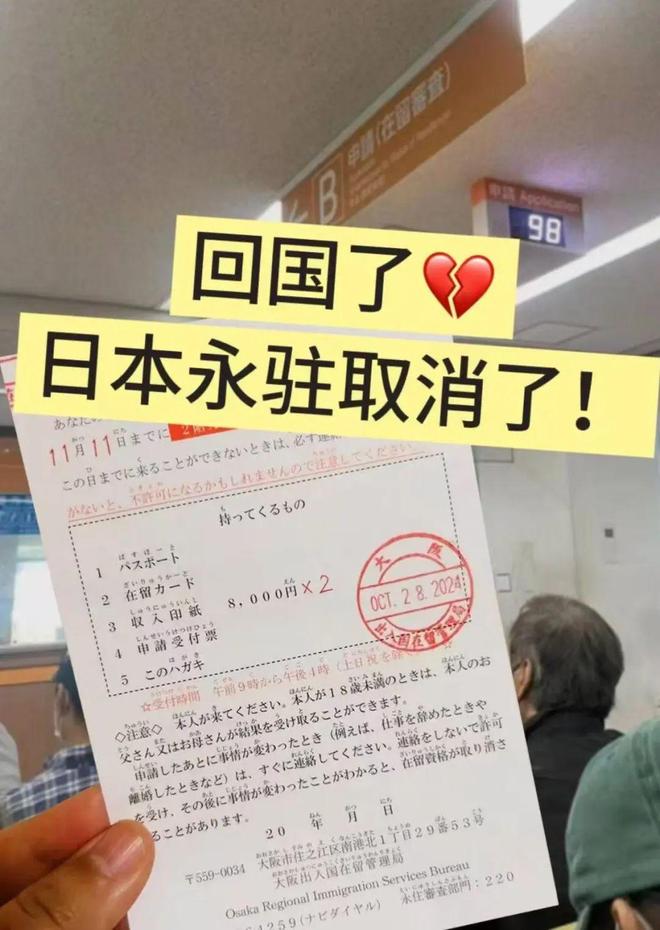 B 申請(在留審査)
申請 Application
98
回国了💔
日本永驻取消了！
11月11日までに
この日までに来ることができないときは、必ず
がないと、不許可になるかもしれませんので注意してください
持ってくるもの
1 パスポート
2 在留カード
3 収入印紙 8,000円×2
4 申請受付票
5 このハガキ
大阪
OCT. 28. 2024
出入国在留管理局
☆受付時間 午前9時から午後4時(土日祝を除
◇注意◇ 本人が来てください。本人が18歳未満のときは、本人のお
父さん又はお母さんが結果を受け取ることができます。
申請したあとに事情が変わったとき(例えば、仕事を辞めたときや
離婚したときなど)は、すぐに連絡してください。連絡をしないで許可
を受け、その後に事情が変わったことがわかると、在留資格が取り消さ
ることがあります。
20 年 月 日
〒559-0034 大阪市住之江区南港北1丁目29番53号
大阪出入国在留管理局
Osaka Regional Immigration Services Bureau
4259(ナビダイヤル) 永住審査部門:220